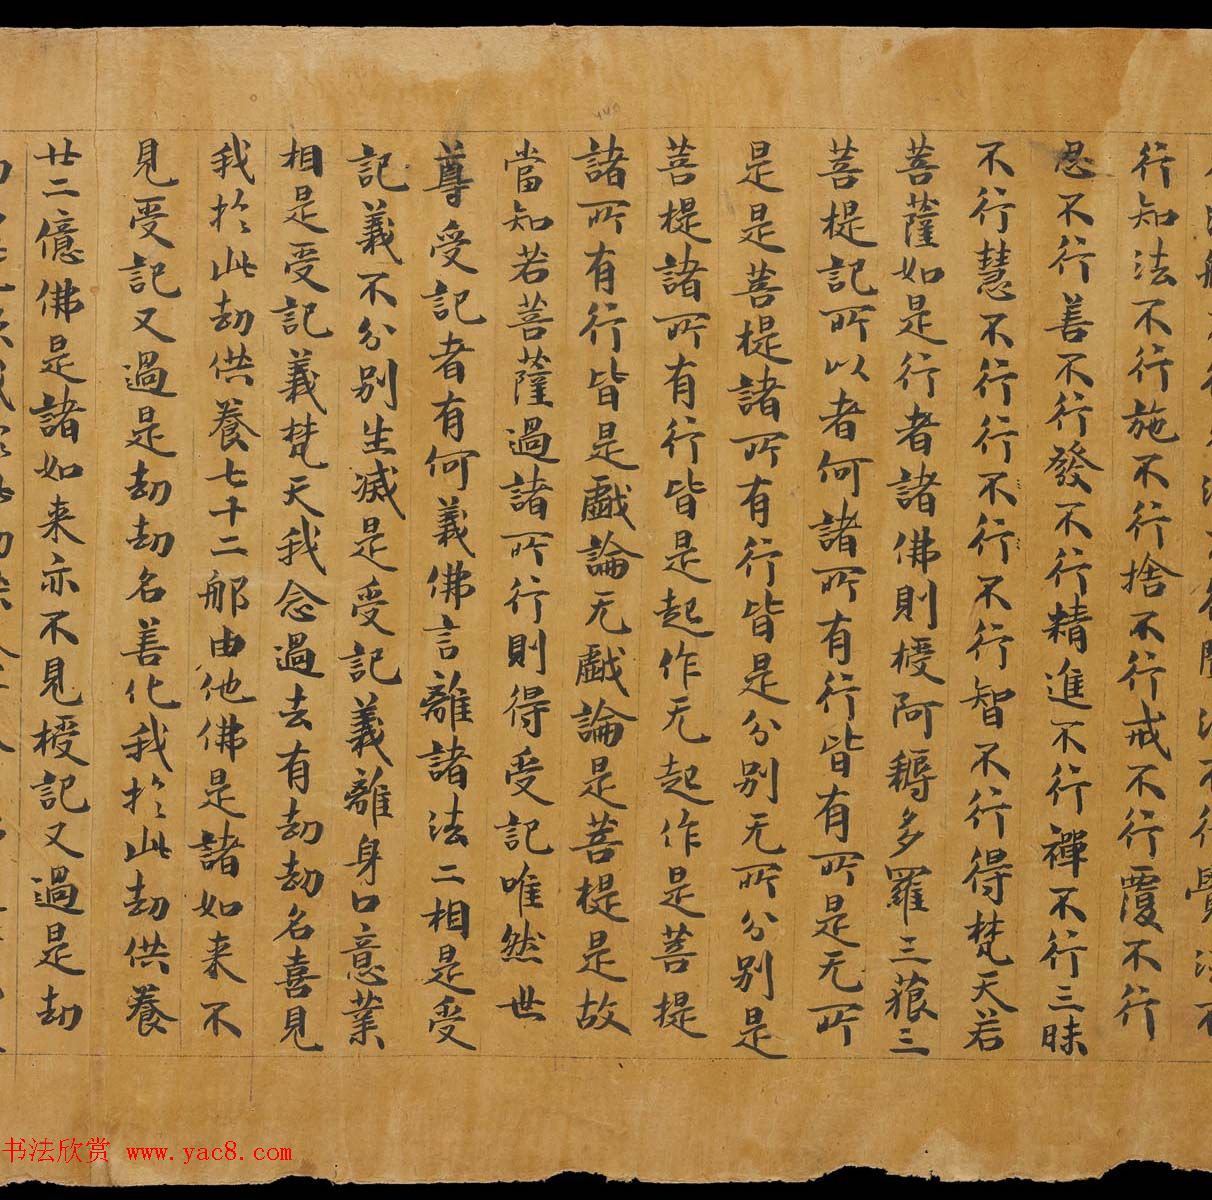 行知法不行施不行捨不行戒不行覆不行
忍不行善不行發不行精進不行禪不行三昧
不行慧不行行不行不行智不行得梵天若
菩薩如是行者諸佛則授阿耨多羅三藐三
菩提記所以者何諸所有行皆有所是无所
是是菩提諸所有行皆是分別无所分別是
菩提諸所有行皆是起作无起作是菩提
諸所有行皆是戲論无戲論是菩提是故
當知若菩薩過諸所行則得受記唯然世
尊受記者有何義佛言離諸法二相是受
記義不分別生滅是受記義離身口意業
相是受記義梵天我念過去有劫劫名喜見
我於此劫供養七十二那由他佛是諸如来不
見受記又過是劫劫名善化我於此劫供養
廿二億佛是諸如来亦不見授記又過是劫
书法欣赏 www.yac8.com